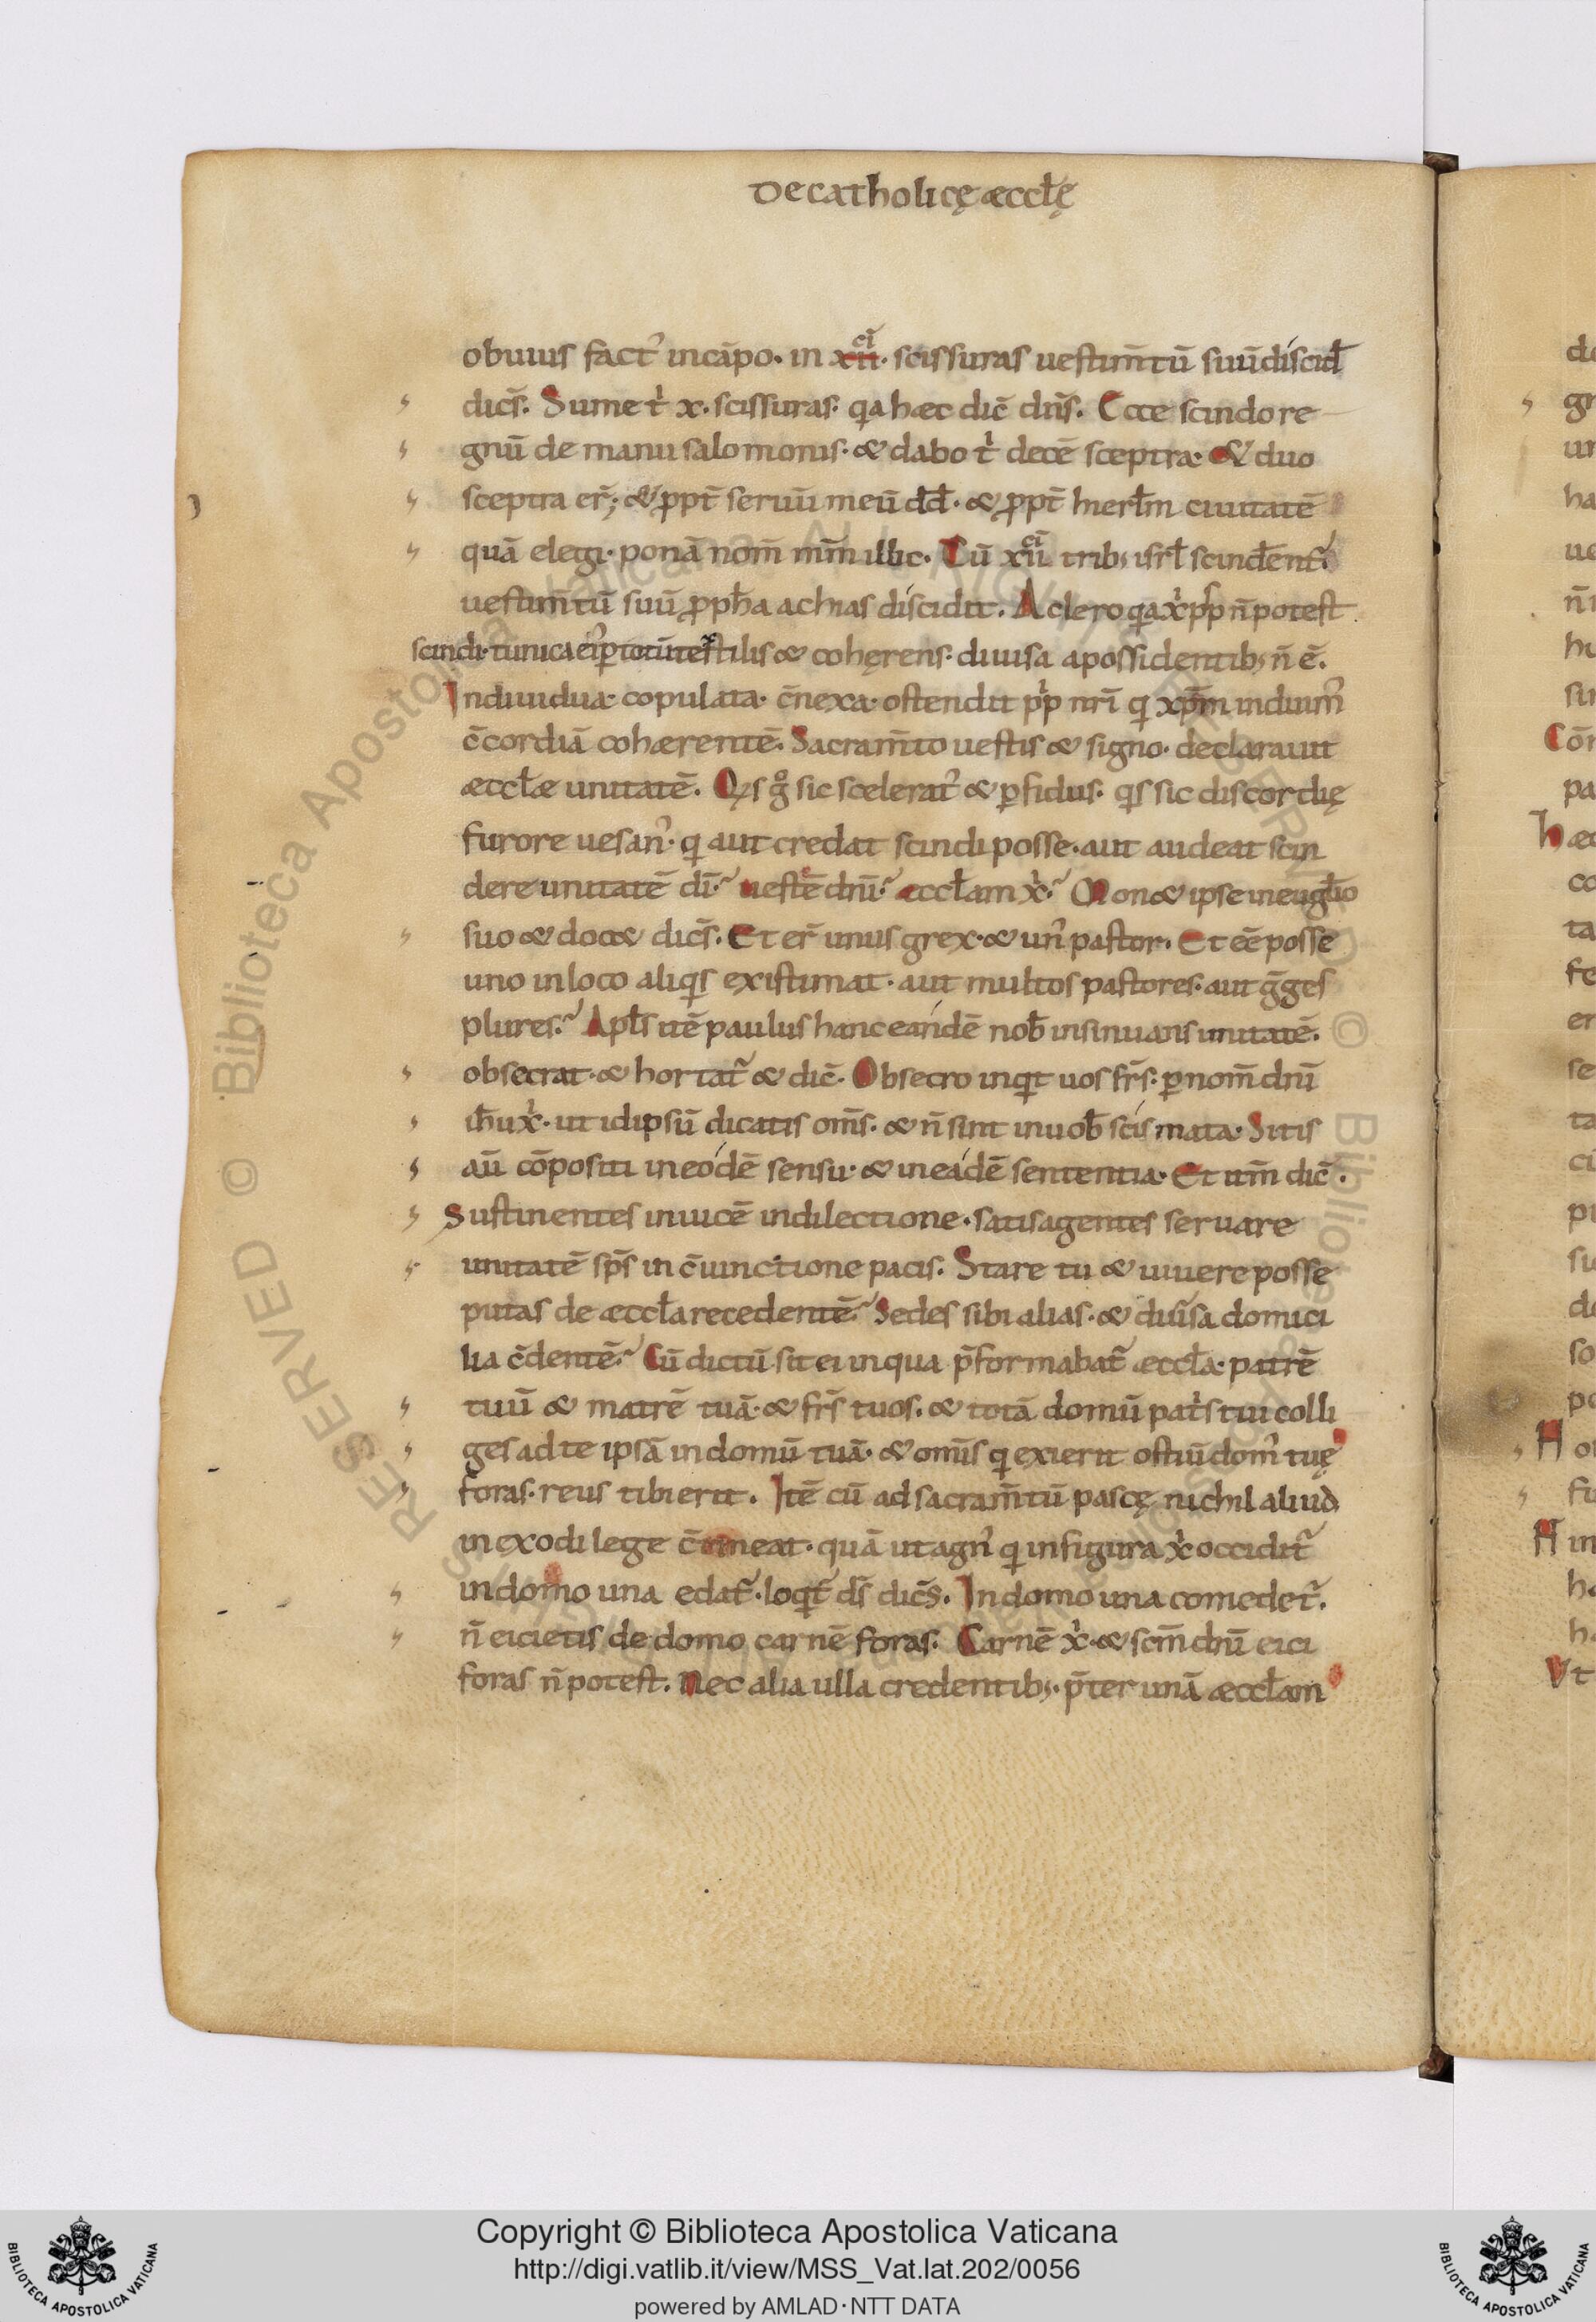 De catholicę æccłę
obuius fact᾽ incāpo. in xii. scissuras uestim̄tū suū discid̄
dic̄s. Sume t᾽ x. scissuras. qa hæc dic̄ dn̄s. Ecce scindo re
gnū de manu salomonis. & dabo t᾽ decē sceptra. & duo
sceptra er̄; & ꝓpt̄ seruū meū dd̄. & ꝓpt̄ hierłm ciuitatē
quā elegi. ponā nom̄ mm̄ illic. Cū xii trib; isrł scinderent᾽
uestim̄tū suū ꝓph̄a achias discidit. A clero qa x᾽ pp n̄ potest
scindi. tunica ei᾽ textilis & cohęrens. diuisa apossidentib; n̄ ē.
Indiuidua. copulata. c̄nexa. ostendit pp nr̄i q xpm̄ induim᾽
c̄cordiā cohærentē. Sacram̄to uestis & signo. declarauit
æccłæ unitatē. Qs g° sic scelerat᾽ & ꝑfidus. qs sic discordię
furore uesan᾽. q aut credat scindi posse. aut audeat scin
dere unitatē dī. uestē dnī. æccłam x᾽. Non & ipse ineuḡlio
suo & doc& dic̄s. Et er̄ unus grex. & un᾽ pastor. Et eē posse
uno inloco aliqs existimat. aut multos pastores. aut ḡges
plures. Apłs itē paulus hanc eandē nob̄ insinuans unitatē.
obsecrat. & hortat᾽ & dic̄. Obsecro inqt uos fr̄s. ꝑ nom̄ dnī
ih̄u x᾽. ut idipsū dicatis om̄s. & n̄ sint inuob̄ scismata. Sitis
aū cōpositi ineodē sensu. & ineadē sententia. Et itm̄ dic̄.
Sustinentes inuicē indilectione. satisagentes seruare
unitatē sp̄s in c̄uinctione pacis. Stare tu & uiuere posse
putas de æccła recedentē. Sedes sibi alias. & diu᾽sa domici
lia c̄dentē. Cū dictū sit ei inqua p̄formabat᾽ æccła. patrē
tuū & matrē tuā. & fr̄s tuos. & totā domū pat᾽s tui colli
ges ad te ipsā in domū tuā. & omīs q exierit ostiū dom᾽ tuę
foras. reus tibi erit. Itē cū ad sacram̄tū pascę nichil aliud
in exodi lege c̄tineat. quā ut agn᾽ q in figura x᾽ occidit᾽
in domo una edat᾽. loqt᾽ ds̄ dic̄s. In domo una comedet᾽.
n̄ eicietis de domo carnē foras. Carnē x᾽. & scm̄ dnī eici
foras n̄ potest. Nec alia ulla credentib;. p̄ter unā æccłam
Copyright © Biblioteca Apostolica Vaticana
http://digi.vatlib.it/view/MSS_Vat.lat.202/0056
powered by AMLAD·NTT DATA
BIBLIOTECA APOSTOLICA VATICANA
BIBLIOTECA APOSTOLICA VATICANA